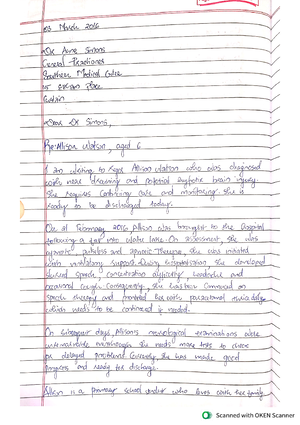 03 March 2016
Dr Anne Simons
General Practitioner
Southern Medical Centre
Dear Dr Simons,
Re: Alison Watson, aged 6
I am writing to refer Alison Watson who was diagnosed
with near drowning and potential hypoxic brain injury.
She requires continuing care and monitoring. She is
ready to be discharged today.
On 21 February 2016 Alison was brought to the hospital
following a fall into lake. On assessment, she was
apnoeic,
with ventilatory support. During hospitalisation she developed
slurred speech, concentration difficulty, headache and
occasional cough. Consequently, she was
speech therapy and
which needs to be continued if needed.
On subsequent days Alison's neurological examinations were
she needs more tests to check
for delayed problems. Currently, she has made good
progress and ready for discharge.
Alison is a primary school student who lives with her family
Scanned with OKEN Scanner